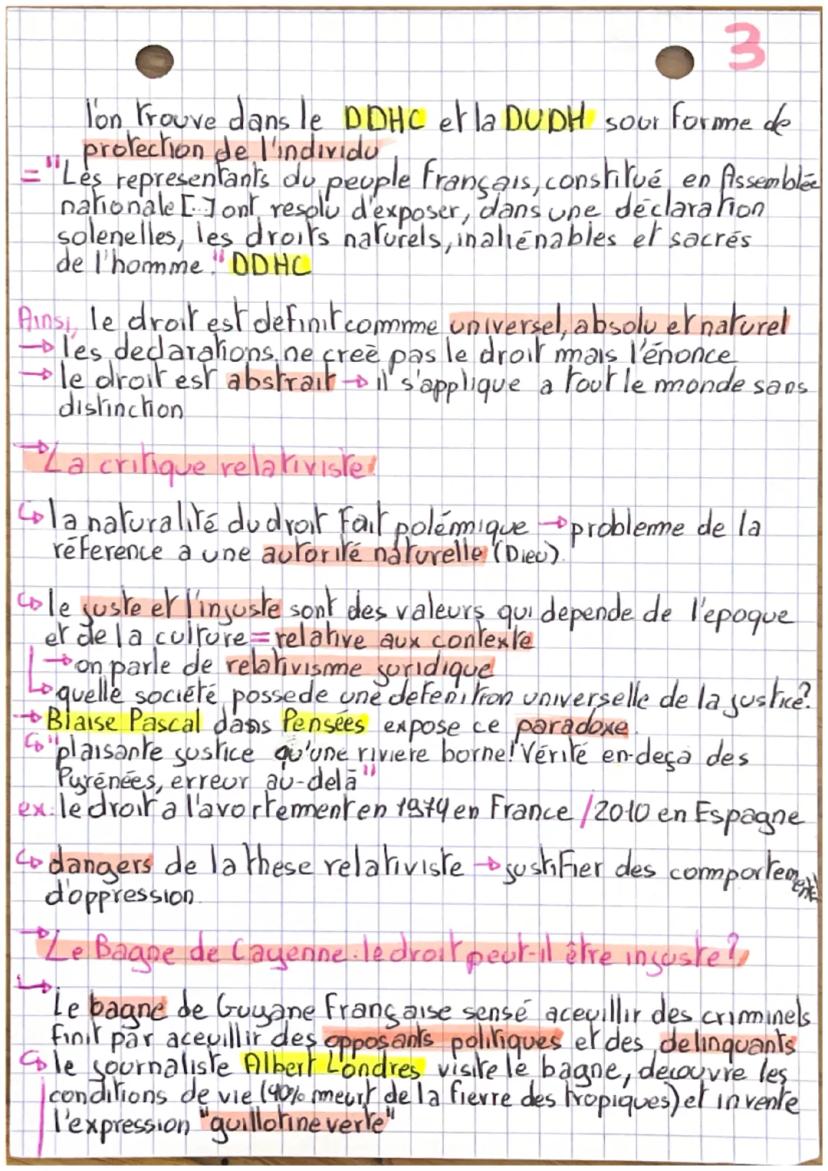 3
l'on trouve dans le DDHC et la DUDH sour forme de
protection de l'individu
="Les representants du peuple français, constitué en Assemblée
nationale [...] ont resolu d'exposer, dans une déclaration
solenelles, les droits naturels, inaliénables et sacrés
de l'homme." DDHC
Ainsi, le droit est definit commme universel, absolu et naturel
→ les declarations ne creè pas le droit mais l'énonce
→ le droit est abstrait → il s'applique a tout le monde sans
distinction
→ La critique relativiste:
↳ la naturalité du droit fait polémique → probleme de la
réference a une autorité naturelle (Dieu).
↳ le juste et l'injuste sont des valeurs qui depende de l'epoque
et de la culture = relative aux contexte
→ on parle de relativisme juridique
↳ quelle société possede une defenition universelle de la justice?
→ Blaise Pascal dans Pensées expose ce paradoxe.
↳ "plaisante justice qu'une riviere borne! Vérité en-deça des
Pyrénées, erreur au-delà"
ex: le droit a l'avortement en 1974 en France / 2010 en Espagne
↳ dangers de la these relativiste → justifier des comportement
d'oppression.
→ Le Bagne de Cayenne: le droit peut-il être injuste?
↳ Le bagne de Guyane Française sensé aceuillir des criminels
finit par aceuillir des opposants politiques et des delinquants
↳ le journaliste Albert Londres visite le bagne, decouvre les
conditions de vie (40% meurt de la fievre des tropiques) et invente
l'expression "guillotine verte"